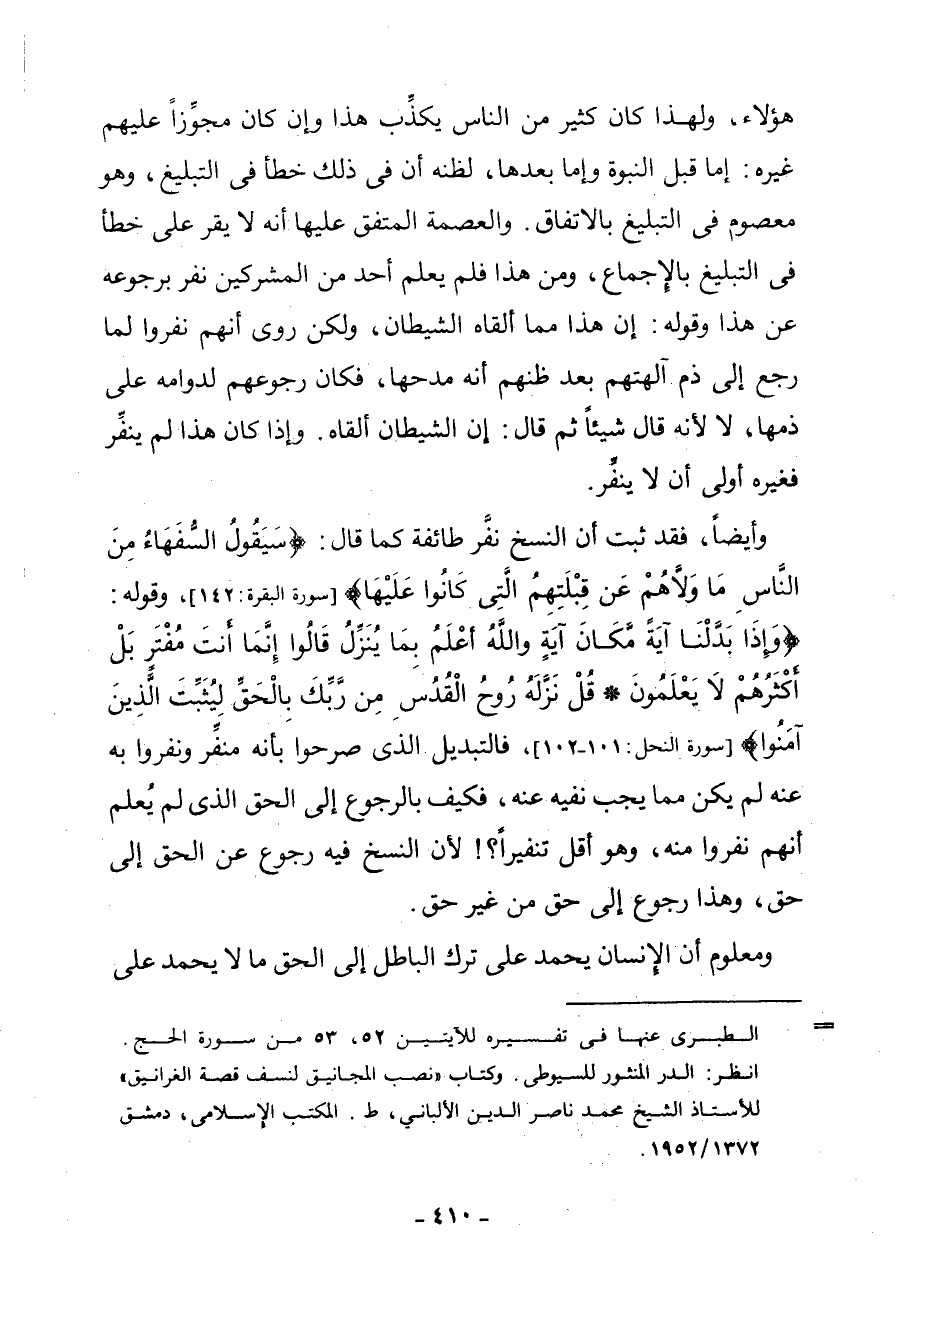 هؤلاء، ولهذا كان كثير من الناس يكذِّب هذا وإن كان مجوِّزاً عليهم
غيره: إما قبل النبوة وإما بعدها، لظنه أن فى ذلك خطأ فى التبليغ، وهو
معصوم فى التبليغ بالاتفاق. والعصمة المتفق عليها أنه لا يقر على خطأ
فى التبليغ بالإجماع، ومن هذا فلم يعلم أحد من المشركين نفر برجوعه
عن هذا وقوله: إن هذا مما ألقاه الشيطان، ولكن روى أنهم نفروا لما
رجع إلى ذم آلهتهم بعد ظنهم أنه مدحها، فكان رجوعهم لدوامه على
ذمها، لا لأنه قال شيئاً ثم قال: إن الشيطان ألقاه. وإذا كان هذا لم ينفِّر
فغيره أولى أن لا ينفِّر.
وأيضاً، فقد ثبت أن النسخ نفَّر طائفة كما قال: ﴿سَيَقُولُ السُّفَهَاءُ مِنَ
النَّاسِ مَا وَلاَّهُمْ عَن قِبْلَتِهِمُ الَّتِى كَانُوا عَلَيْهَا﴾ [سورة البقرة: ١٤٢]، وقوله:
﴿وَإِذَا بَدَّلْنَا آيَةً مَّكَانَ آيَةٍ واللَّهُ أعْلَمُ بِمَا يُنَزِّلُ قَالُوا إِنَّمَا أَنتَ مُفْتَرٍ بَلْ
أَكْثَرُهُمْ لَا يَعْلَمُونَ * قُلْ نَزَّلَهُ رُوحُ الْقُدُسِ مِن رَّبِّكَ بِالْحَقِّ لِيُثَبِّتَ الَّذِينَ
آمَنُوا﴾ [سورة النحل: ١٠١-١٠٢]، فالتبديل الذى صرحوا بأنه منفِّر ونفروا به
عنه لم يكن مما يجب نفيه عنه، فكيف بالرجوع إلى الحق الذى لم يُعلم
أنهم نفروا منه، وهو أقل تنفيراً؟! لأن النسخ فيه رجوع عن الحق إلى
حق، وهذا رجوع إلى حق من غير حق.
ومعلوم أن الإنسان يحمد على ترك الباطل إلى الحق ما لا يحمد على
= الطبرى عنها فى تفسيره للآيتين ٥٢، ٥٣ من سورة الحج.
انظر: الدر المنثور للسيوطى. وكتاب «نصب المجانيق لنسف قصة الغرانيق»
للأستاذ الشيخ محمد ناصر الدين الألباني، ط. المكتب الإسلامى، دمشق
١٩٥٢/١٣٧٢.
- ٤١٠ -